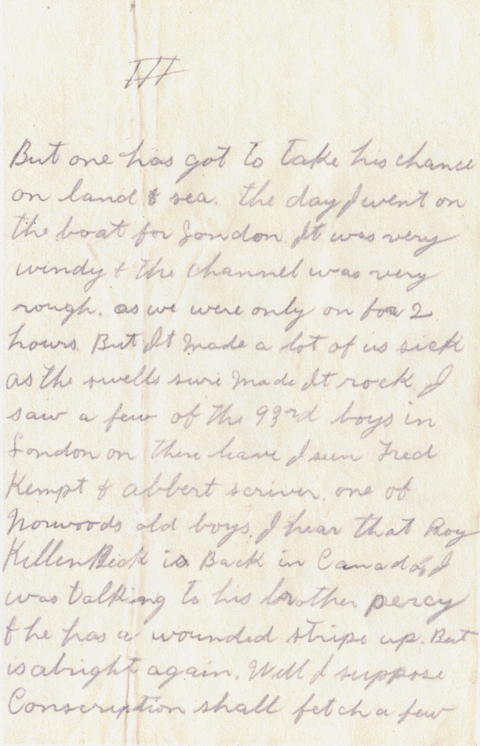 III
But one has got to take his chance
on land & sea. the day I went on
the boat for London. It was very
windy & the channel was very
rough. as we were only on for 2
hours. But It made a lot of us sick
as the swells sure made It rock. I
saw a few of the 93rd boys in
London on there leave I seen Fred
Kempt & abbert scriver. one of
Norwoods old boys. I hear that Roy
KillenBeck is Back in Canada, I
was talking to his brother percy
& he has a wounded stripe up. But
is alright again. Well I suppose
Conscription shall fetch a few